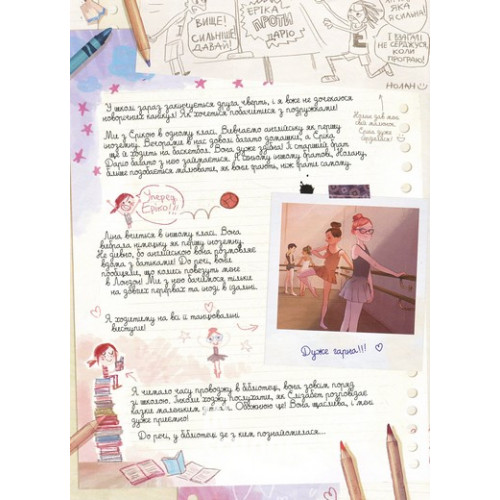 ВИЩЕ!
СИЛЬНІШЕ
ДАВАЙ!
ЕРІКА
ПРОТИ
ДАРІО
ЯКА
Я СИЛЬНА!
І ВИГРАЛ
НЕ СЕРДЖУСЯ,
КОЛИ
ПРОГРАЮ!
НОЛАН
У школі зараз закінчується друга чверть, і я вже не дочекаюся
новорічних канікул! Як хочеться побачитися з подружками!
Ми з Ерікою в одному класі. Вивчаємо англійську як першу
іноземну. Вечорами в нас доволі багато домашки, а Еріка
ще й ходить на баскетбол. Вона дуже здібна! Її старший брат
Даріо багато з нею займається. А їхньому іншому братові, Нолану,
більше подобається малювати, як вони грають, ніж грати самому.
Нолан дав мені
свій малюнок.
Еріка дуже
сердилася!
Уперед,
Еріко!!
Ліна вчиться в іншому класі. Вона
вибрала німецьку як першу іноземну.
Не дивно, бо англійською вона розмовляє
вдома з батьками! До речі, вони
пообіцяли, що колись повезуть мене
в Лондон! Ми з нею бачимося тільки
на довгих перервах та іноді в їдальні.
Я ходитиму на всі її танцювальні
виступи!
Дуже гарна!!!
Я чимало часу проводжу в бібліотеці, вона зовсім поряд
зі школою. Інколи ходжу послухати, як Елізабет розповідає
казки маленьким діткам. Обожнюю це! Вона щаслива, і мені
дуже приємно!
До речі, у бібліотеці де з ким познайомилася...